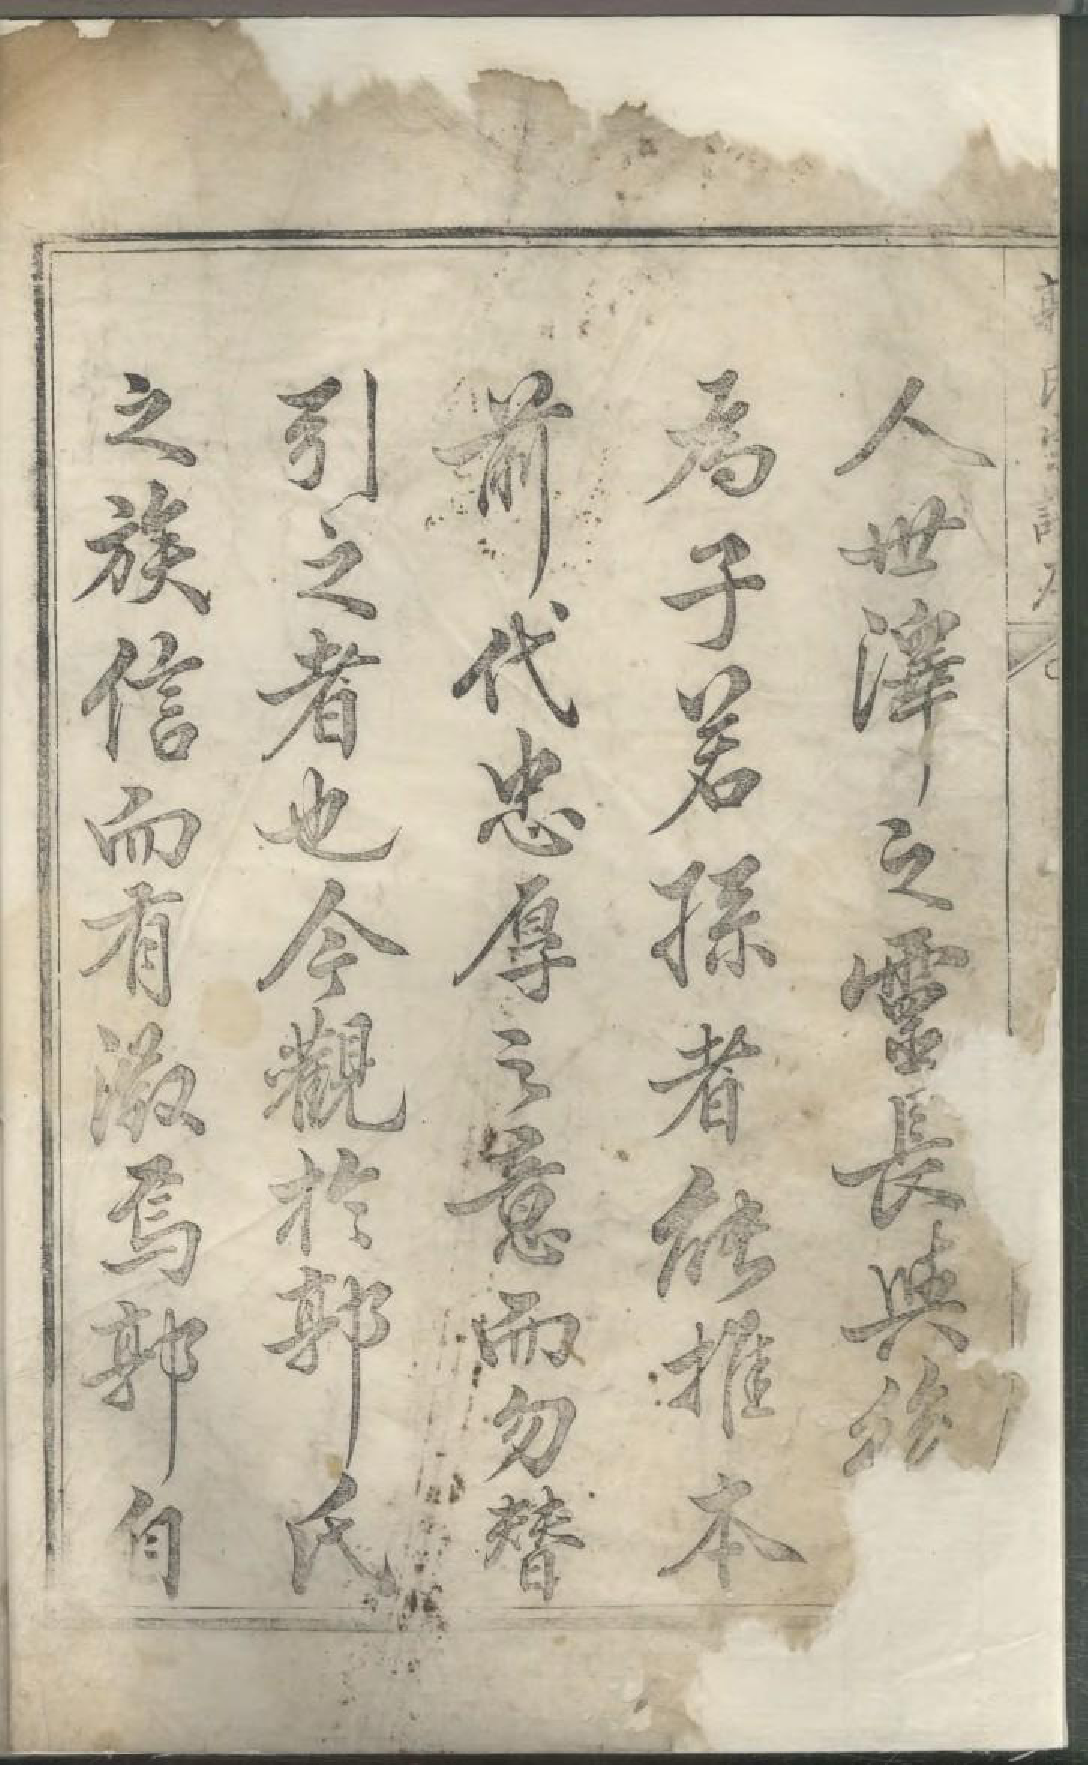 氏
人世澤之靈長與後
為子若孫者能推本
前代忠厚之意而勿替
引之者也今觀於郭氏
之族信而有徵焉郭自